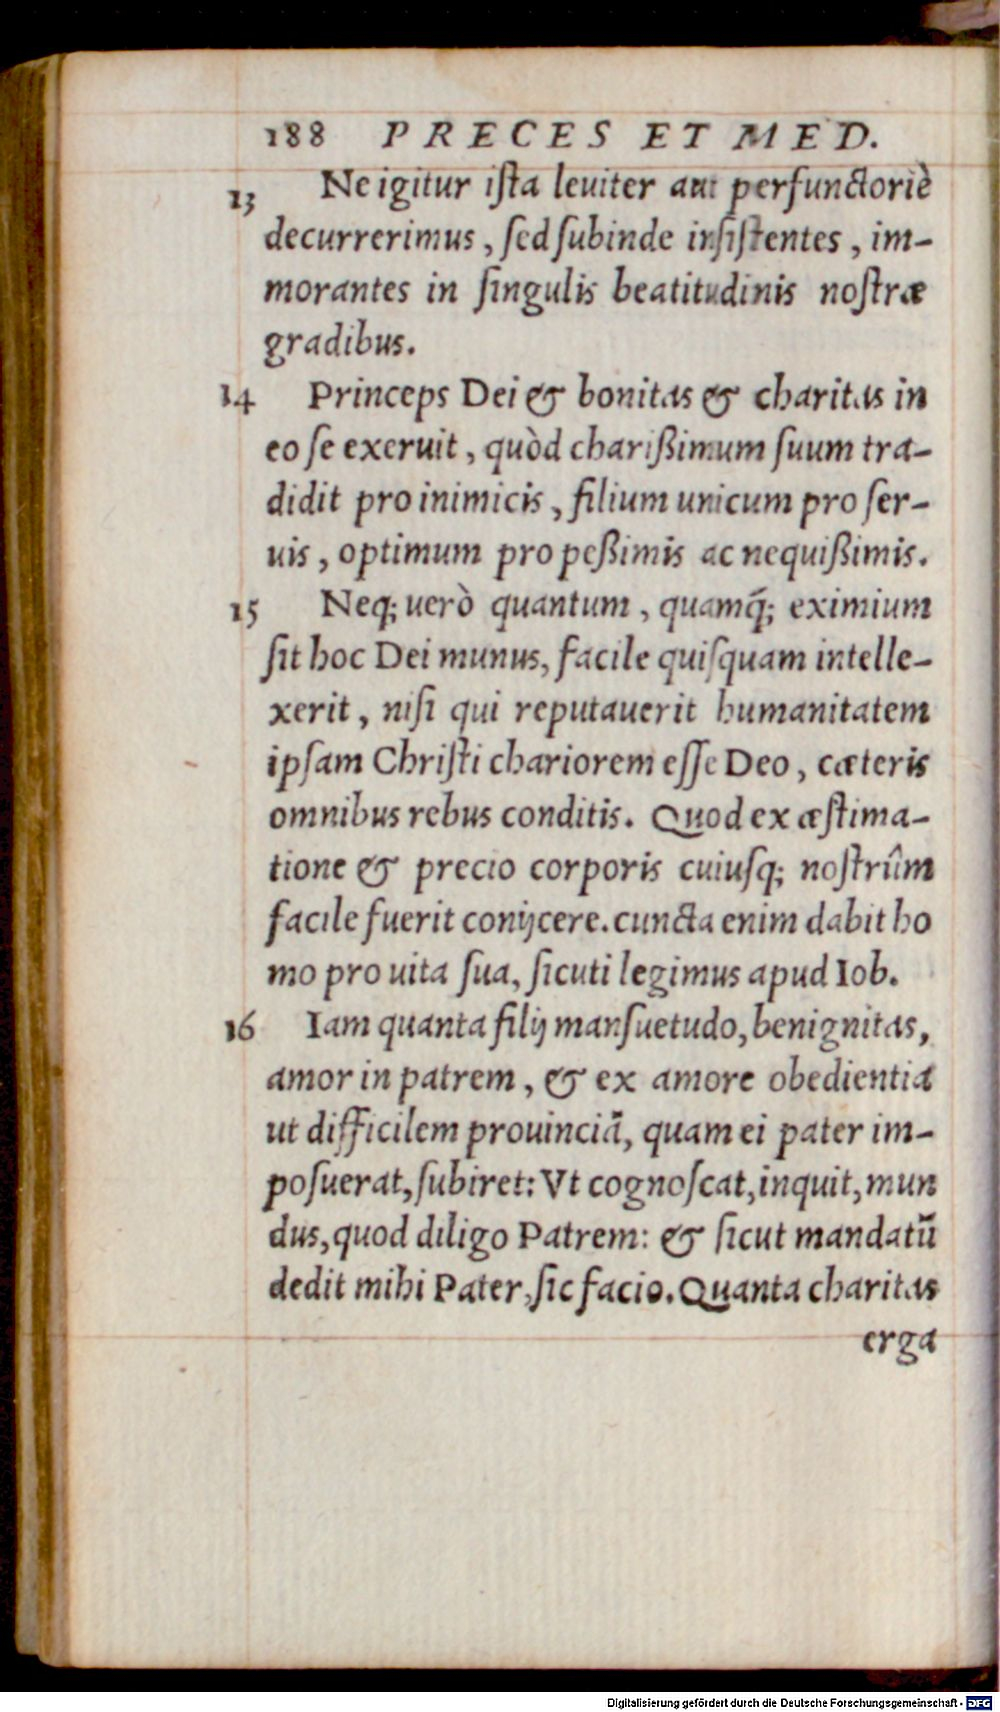 188 PRECES ET MED.
13 Ne igitur iſta leuiter aut perfunctoriè
decurrerimus, ſed ſubinde inſiſtentes, im-
morantes in ſingulis beatitudinis noſtræ
gradibus.
14 Princeps Dei & bonitas & charitas in
eo ſe exeruit, quòd charißimum ſuum tra-
didit pro inimicis, filium unicum pro ſer-
uis, optimum pro peßimis ac nequißimis.
15 Neq; uerò quantum, quamq̃; eximium
ſit hoc Dei munus, facile quiſquam intelle-
xerit, niſi qui reputauerit humanitatem
ipſam Chriſti chariorem eſſe Deo, cæteris
omnibus rebus conditis. Quod ex æſtima-
tione & precio corporis cuiuſq; noſtrûm
facile fuerit conijcere. cuncta enim dabit ho
mo pro uita ſua, ſicuti legimus apud Iob.
16 Iam quanta filij manſuetudo, benignitas,
amor in patrem, & ex amore obedientia
ut difficilem prouinciã, quam ei pater im-
poſuerat, ſubiret: Vt cognoſcat, inquit, mun
dus, quod diligo Patrem: & ſicut mandatũ
dedit mihi Pater, ſic facio. Quanta charitas
erga
Digitalisierung gefördert durch die Deutsche Forschungsgemeinschaft - DFG